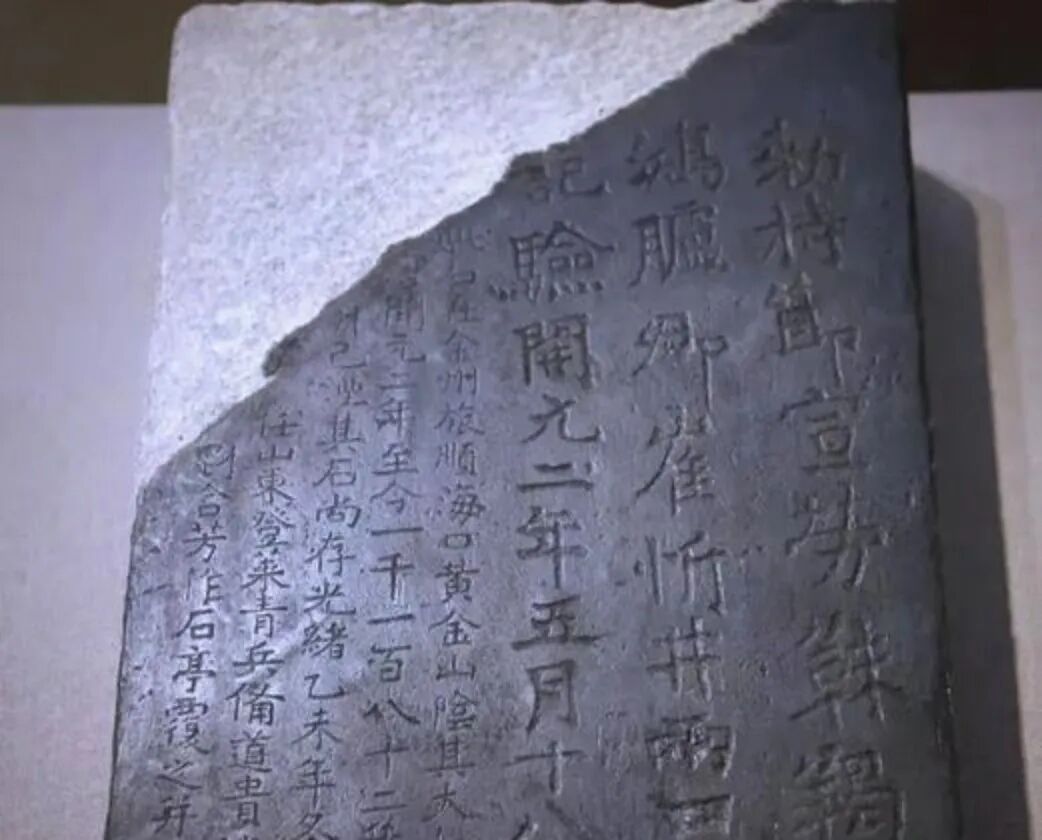 勅持節宣勞靺羯
鴻臚卿崔忻井兩口
記驗開元二年五月十八
此石在金州旅順海口黃金山陰其大
開元二年至今一千一百八十二年
井已湮其石尚存光緒乙未年冬
任山東登萊青兵備道貴
劉含芳作石亭覆之并